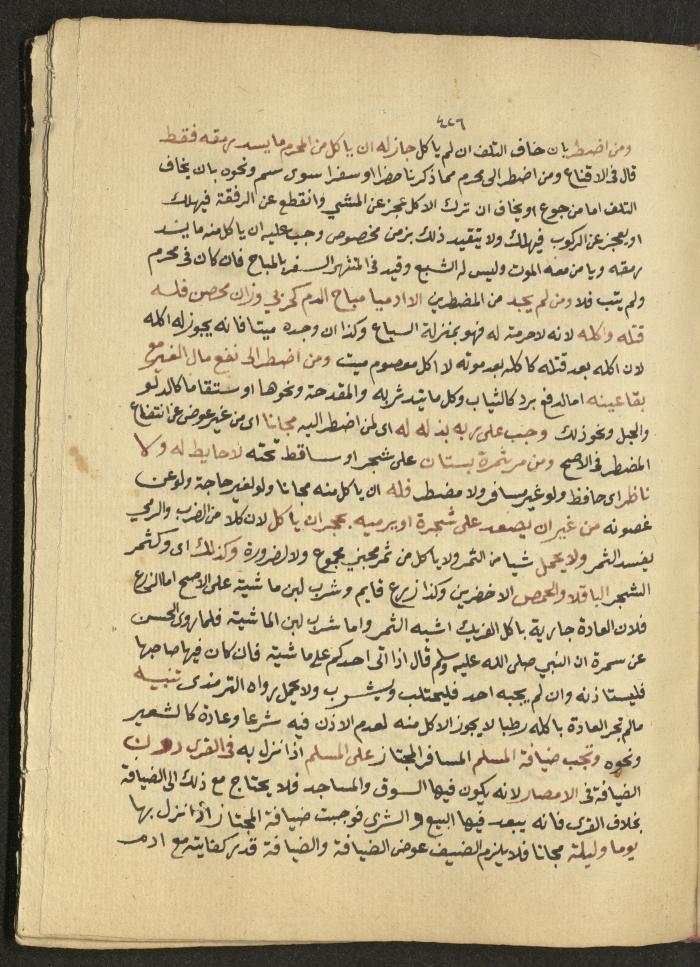 ٤٢٦
ومن اضطر بان خاف التلف ان لم ياكل جاز له ان ياكل من المحرم ما يسد رمقه فقط
قال في الاقناع ومن اضطر الى محرم مما ذكرنا حضرا او سفرا سوى سم ونحوه بان يخاف
التلف اما من جوع او يخاف ان ترك الاكل عجز عن المشي وانقطع عن الرفقة فيهلك
او يعجز عن الركوب فيهلك ولا يتقيد ذلك بزمن مخصوص وجب عليه ان ياكل منه ما يسد
رمقه ويامن معه الموت وليس له الشبع وقيد في المنتهى السفر بالمباح فان كان في محرم
ولم يتب فلا ومن لم يجد من المضطرين الا ادميا مباح الدم كحربي وزان محصن فله
قتله واكله لانه لا حرمة له فهو بمنزلة السباع وكذا ان وجده ميتا فانه يجوز له اكله
لان اكله بعد قتله كاكله بعد موته لا اكل معصوم ميت ومن اضطر الى نفع مال الغير مع
بقا عينه اما لدفع برد كالثياب وكل ما يتدثر به والمقدحة ونحوها او ستقا ما كالدلو
والحبل ونحو ذلك وجب على ربه بذله له اي لمن اضطر اليه مجانا اي من غير عوض عن انتفاع
المضطر في الاصح ومن مر بثمرة بستان على شجر او ساقط تحته لا حايط له ولا
ناظر اي حافظ ولو غير مسافر ولا مضطر فله ان ياكل منه مجانا ولو لغير حاجة ولو عن
غصونه من غير ان يصعد على شجرة او يرميه بحجر ان ياكل لان كلا من الضرب والرمي
يفسد الثمر ولا يحمل شيا من الثمر ولا ياكل من ثمر مجني مجموع ولا لضرورة وكذلك اي وكثمر
الشجر الباقلا والحمص الاخضرين وكذا زرع قايم وشرب لبن ماشية على الاصح اما الزرع
فلان العادة جارية باكل الفريك اشبه الثمر واما شرب لبن الماشية فلما روى الحسن
عن سمرة ان النبي صلى الله عليه وسلم قال اذا اتى احدكم على ماشية فان كان فيها صاحبها
فليستاذنه وان لم يجبه احد فليحتلب ويشرب ولا يحمل رواه الترمذي تنبيه
ما لم تجر العادة باكله رطبا لا يجوز الاكل منه لعدم الاذن فيه شرعا وعادة كالشعير
ونحوه وتجب ضيافة المسلم المسافر المجتاز على المسلم اذا نزل به في القرى دون
الضيافة في الامصار لانه يكون فيها السوق والمساجد فلا يحتاج مع ذلك الى الضيافة
بخلاف القرى فانه يبعد فيها البيع والشرى فوجبت ضيافة المجتاز اذا نزل بها
يوما وليلة مجانا فلا يلزم الضيف عوض الضيافة والضيافة قدر كفايته مع ادم